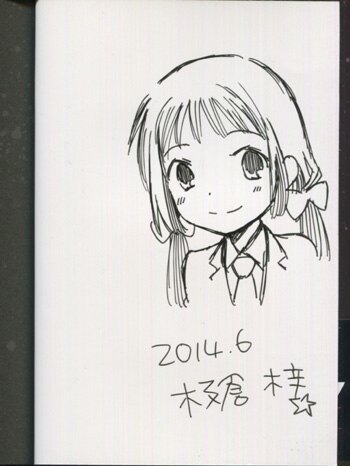 2014.6
板倉 梓☆